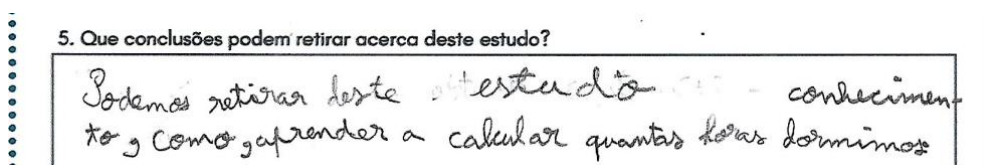 5. Que conclusões podem retirar acerca deste estudo?
Podemos retirar deste estudo conhecimen-
to, como, aprender a calcular quantas horas dormimos